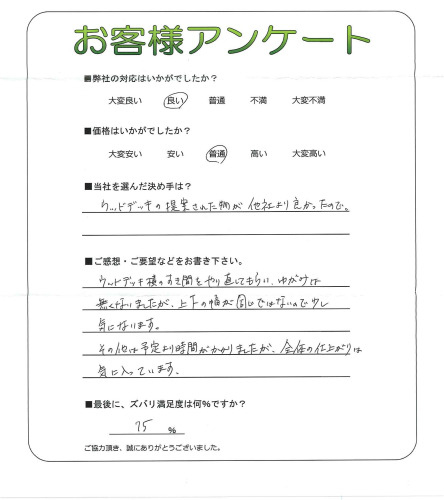 お客様アンケート
■弊社の対応はいかがでしたか?
大変良い 良い 普通 不満 大変不満
■価格はいかがでしたか?
大変安い 安い 普通 高い 大変高い
■当社を選んだ決め手は?
ウッドデッキの提案された物が他社より良かったので。
■ご感想・ご要望などをお書き下さい。
ウッドデッキ横のすき間をやり直してもらい、ゆがみは
無くなりましたが、上下の幅が同じではないので少し
気になります。
その他は予定より時間がかかりましたが、全体の仕上がりは
気に入っています。
■最後に、ズバリ満足度は何%ですか?
75 %
ご協力頂き、誠にありがとうございました。